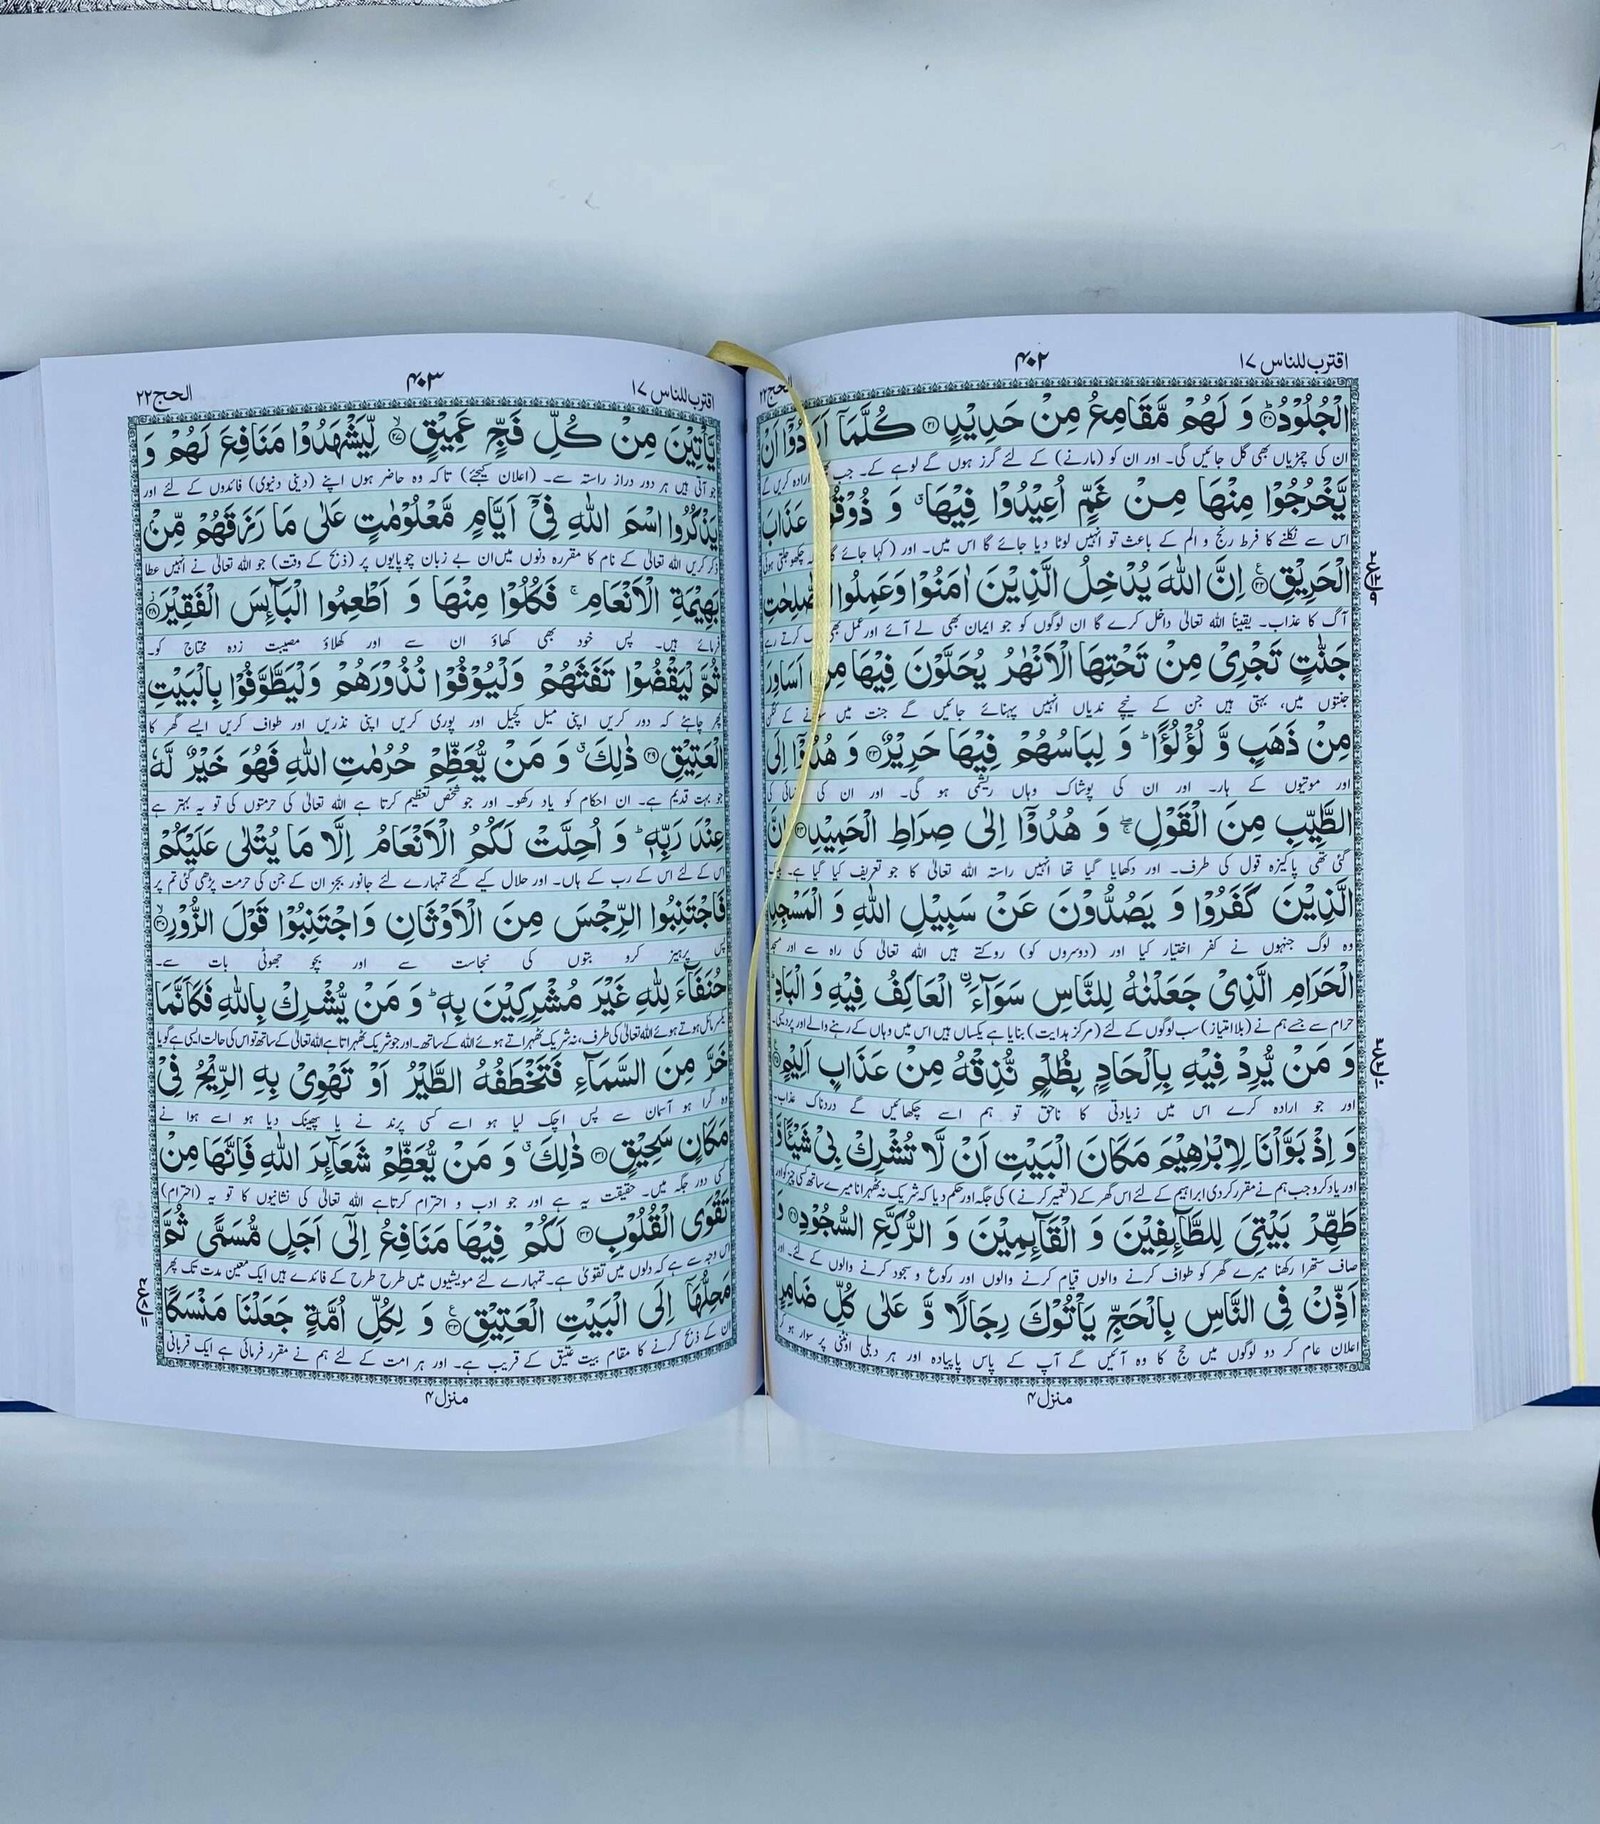 اقترب للناس ۱۷
۴۰۲
الحج ۲۲
الْجُلُوْدُ ؕ﴿۲۰﴾ وَ لَهُمْ مَّقَامِعُ مِنْ حَدِیْدٍ ﴿۲۱﴾ كُلَّمَاۤ اَرَادُوْۤا اَنْ
ان کی چمڑیاں بھی گل جائیں گی۔ اور ان کو (مارنے) کے لئے گرز ہوں گے لوہے کے۔ جب ارادہ کریں گے
یَّخْرُجُوْا مِنْهَا مِنْ غَمٍّ اُعِیْدُوْا فِیْهَا ۗ وَ ذُوْقُوْا عَذَابَ
اس سے نکلنے کا فرط رنج و الم کے باعث تو انہیں لوٹا دیا جائے گا اس میں۔ اور (کہا جائے گا) کہ چکھو جلتی ہوئی
الْحَرِیْقِ ﴿۲۲﴾ اِنَّ اللّٰهَ یُدْخِلُ الَّذِیْنَ اٰمَنُوْا وَعَمِلُوا الصّٰلِحٰتِ
آگ کا عذاب۔ یقیناً اللہ تعالیٰ داخل کرے گا ان لوگوں کو جو ایمان بھی لے آئے اور عمل بھی کرتے رہے
جَنّٰتٍ تَجْرِیْ مِنْ تَحْتِهَا الْاَنْهٰرُ یُحَلَّوْنَ فِیْهَا مِنْ اَسَاوِرَ
جنتوں میں، بہتی ہیں جن کے نیچے ندیاں انہیں پہنائے جائیں گے جنت میں سونے کے کنگن
مِنْ ذَهَبٍ وَّ لُؤْلُؤًا ؕ وَ لِبَاسُهُمْ فِیْهَا حَرِیْرٌ ﴿۲۳﴾ وَ هُدُوْۤا اِلَی
اور موتیوں کے ہار۔ اور ان کی پوشاک وہاں ریشمی ہو گی۔ اور ان کی رہنمائی کی
الطَّیِّبِ مِنَ الْقَوْلِ ۖۚ وَ هُدُوْۤا اِلٰی صِرَاطِ الْحَمِیْدِ ﴿۲۴﴾ اِنَّ
گئی تھی پاکیزہ قول کی طرف۔ اور دکھایا گیا تھا انہیں راستہ اللہ تعالیٰ کا جو تعریف کیا گیا ہے۔ بیشک
الَّذِیْنَ كَفَرُوْا وَ یَصُدُّوْنَ عَنْ سَبِیْلِ اللّٰهِ وَ الْمَسْجِدِ
وہ لوگ جنہوں نے کفر اختیار کیا اور (دوسروں کو) روکتے ہیں اللہ تعالیٰ کی راہ سے اور مسجد
الْحَرَامِ الَّذِیْ جَعَلْنٰهُ لِلنَّاسِ سَوَآءَ ࣙالْعَاكِفُ فِیْهِ وَ الْبَادِ ؕ
حرام سے جسے ہم نے (بلا امتیاز) سب لوگوں کے لئے (مرکز ہدایت) بنایا ہے یکساں ہیں اس میں وہاں کے رہنے والے اور پردیسی۔
وَ مَنْ یُّرِدْ فِیْهِ بِاِلْحَادٍۭ بِظُلْمٍ نُّذِقْهُ مِنْ عَذَابٍ اَلِیْمٍ ﴿۲۵﴾
اور جو ارادہ کرے اس میں زیادتی کا ناحق تو ہم اسے چکھائیں گے دردناک عذاب۔
وَ اِذْ بَوَّاْنَا لِاِبْرٰهِیْمَ مَكَانَ الْبَیْتِ اَنْ لَّا تُشْرِكْ بِیْ شَیْئًا وَّ
اور یاد کرو جب ہم نے مقرر کر دی ابراہیم کے لئے اس گھر کے (تعمیر کرنے) کی جگہ اور حکم دیا کہ شریک نہ ٹھہرانا میرے ساتھ کسی چیز کو اور
طَهِّرْ بَیْتِیَ لِلطَّآىِٕفِیْنَ وَ الْقَآىِٕمِیْنَ وَ الرُّكَّعِ السُّجُوْدِ ﴿۲۶﴾ وَ
صاف ستھرا رکھنا میرے گھر کو طواف کرنے والوں قیام کرنے والوں اور رکوع و سجود کرنے والوں کے لئے۔ اور
اَذِّنْ فِی النَّاسِ بِالْحَجِّ یَاْتُوْكَ رِجَالًا وَّ عَلٰی كُلِّ ضَامِرٍ
اعلان عام کر دو لوگوں میں حج کا وہ آئیں گے آپ کے پاس پاپیادہ اور ہر دبلی اونٹنی پر سوار ہو کر
منزل ۴
اقترب للناس ۱۷
۴۰۳
الحج ۲۲
یَّاْتِیْنَ مِنْ كُلِّ فَجٍّ عَمِیْقٍ ۙ﴿۲۷﴾ لِّیَشْهَدُوْا مَنَافِعَ لَهُمْ وَ
جو آتی ہیں ہر دور دراز راستہ سے۔ (اعلان کیجئے) تاکہ وہ حاضر ہوں اپنے (دینی دنیوی) فائدوں کے لئے اور
یَذْكُرُوا اسْمَ اللّٰهِ فِیْۤ اَیَّامٍ مَّعْلُوْمٰتٍ عَلٰی مَا رَزَقَهُمْ مِّنْۢ
ذکر کریں اللہ تعالیٰ کے نام کا مقررہ دنوں میں ان بے زبان چوپایوں پر (ذبح کے وقت) جو اللہ تعالیٰ نے انہیں عطا
بَهِیْمَةِ الْاَنْعَامِ ۚ فَكُلُوْا مِنْهَا وَ اَطْعِمُوا الْبَآىِٕسَ الْفَقِیْرَ ؗ﴿۲۸﴾
فرمائے ہیں۔ پس خود بھی کھاؤ ان سے اور کھلاؤ مصیبت زدہ محتاج کو۔
ثُمَّ لْیَقْضُوْا تَفَثَهُمْ وَلْیُوْفُوْا نُذُوْرَهُمْ وَلْیَطَّوَّفُوْا بِالْبَیْتِ
پھر چاہئے کہ دور کریں اپنی میل کچیل اور پوری کریں اپنی نذریں اور طواف کریں ایسے گھر کا
الْعَتِیْقِ ﴿۲۹﴾ ذٰلِكَ ۗ وَ مَنْ یُّعَظِّمْ حُرُمٰتِ اللّٰهِ فَهُوَ خَیْرٌ لَّهٗ
جو بہت قدیم ہے۔ ان احکام کو یاد رکھو۔ اور جو شخص تعظیم کرتا ہے اللہ تعالیٰ کی حرمتوں کی تو یہ بہتر ہے
عِنْدَ رَبِّهٖ ؕ وَ اُحِلَّتْ لَكُمُ الْاَنْعَامُ اِلَّا مَا یُتْلٰی عَلَیْكُمْ
اس کے لئے اس کے رب کے ہاں۔ اور حلال کیے گئے تمہارے لئے جانور بجز ان کے جن کی حرمت پڑھی گئی تم پر
فَاجْتَنِبُوا الرِّجْسَ مِنَ الْاَوْثَانِ وَاجْتَنِبُوْا قَوْلَ الزُّوْرِ ۙ﴿۳۰﴾
پس پرہیز کرو بتوں کی نجاست سے اور بچو جھوٹی بات سے۔
حُنَفَآءَ لِلّٰهِ غَیْرَ مُشْرِكِیْنَ بِهٖ ؕ وَ مَنْ یُّشْرِكْ بِاللّٰهِ فَكَاَنَّمَا
یکسر مائل ہوتے ہوئے اللہ تعالیٰ کی طرف، نہ شریک ٹھہراتے ہوئے اللہ کے ساتھ۔ اور جو شریک ٹھہراتا ہے اللہ تعالیٰ کے ساتھ تو اس کی حالت ایسی ہے گویا
خَرَّ مِنَ السَّمَآءِ فَتَخْطَفُهُ الطَّیْرُ اَوْ تَهْوِیْ بِهِ الرِّیْحُ فِیْ
وہ گرا ہو آسمان سے پس اچک لیا ہو اسے کسی پرند نے یا پھینک دیا ہو اسے ہوا نے
مَكَانٍ سَحِیْقٍ ﴿۳۱﴾ ذٰلِكَ ۗ وَ مَنْ یُّعَظِّمْ شَعَآىِٕرَ اللّٰهِ فَاِنَّهَا مِنْ
کسی دور جگہ میں۔ حقیقت یہ ہے اور جو ادب و احترام کرتا ہے اللہ تعالیٰ کی نشانیوں کا تو یہ (احترام)
تَقْوَی الْقُلُوْبِ ﴿۳۲﴾ لَكُمْ فِیْهَا مَنَافِعُ اِلٰۤی اَجَلٍ مُّسَمًّی ثُمَّ
اس وجہ سے ہے کہ دلوں میں تقویٰ ہے۔ تمہارے لئے مویشیوں میں طرح طرح کے فائدے ہیں ایک معین مدت تک پھر
مَحِلُّهَاۤ اِلَی الْبَیْتِ الْعَتِیْقِ ﴿۳۳﴾ وَ لِكُلِّ اُمَّةٍ جَعَلْنَا مَنْسَكًا
ان کے ذبح کرنے کا مقام بیت عتیق کے قریب ہے۔ اور ہر امت کے لئے ہم نے مقرر فرمائی ہے ایک قربانی
منزل ۴